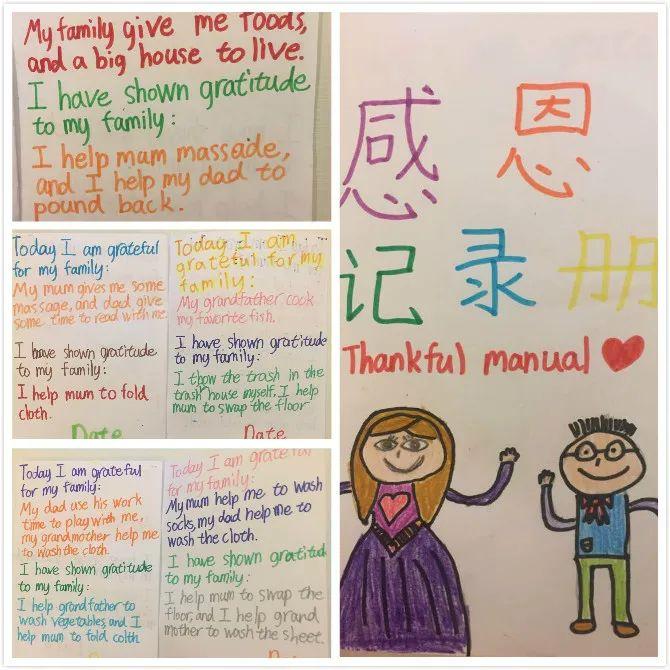 My family give me foods,
and a big house to live.
I have shown gratitude
to my family:
I help mam massade,
and I help my dad to
pound back.
Today I am grateful
for my family:
My mum gives me some
massage, and dad give
some time to read with me.
I have shown gratitude
to my family:
I help mum to fold
cloth.
Date
Today I am
grateful for my
family:
My grandfather cook
my favorite fish.
I have shown gratitude
to my family:
I thow the trash in the
trash house myself, I help
mum to swap the floor
Date
Today I am grateful
for my family:
My dad use his work
time to play with me,
my grandmother help me
to wash the cloth.
I have shown gratitude
to my family:
I help grandfather to
wash vegetables, and I
help mum to fold colth
Today I am grateful
for my family:
My mum help me to wash
socks, my dad help me to
wash the cloth.
I have shown gratitud
to my family:
I help mum to swap the
floor, and I help grand
mother to wash the sheet.
感 恩
记 录 册
Thankful manual